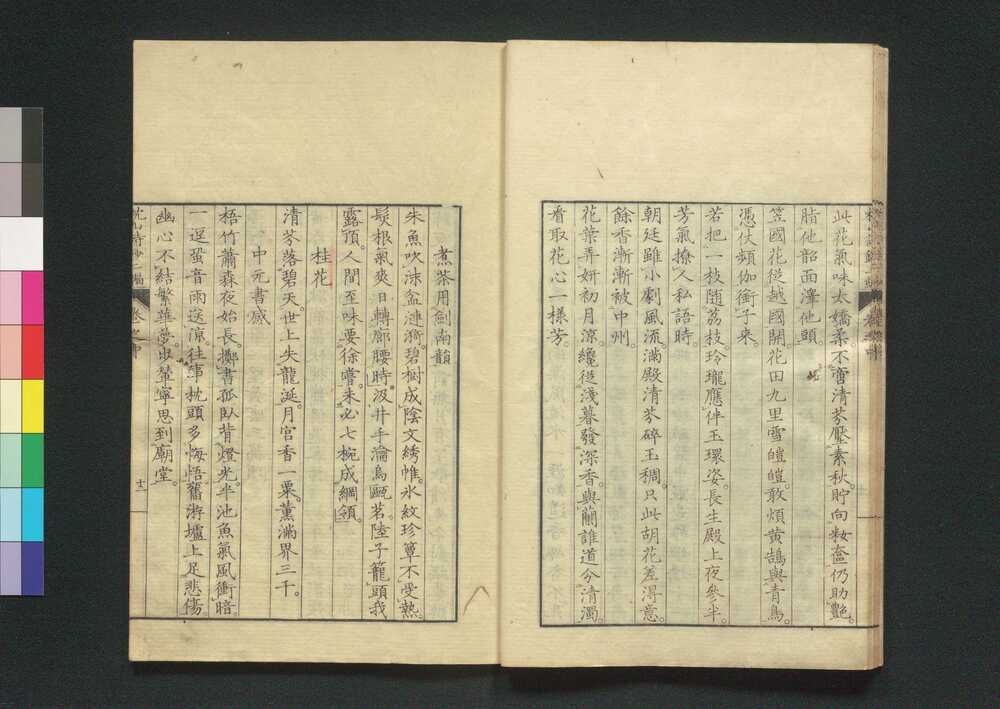 此花氣味太嬌柔不啻清芬壓素秋貯向粧奩仍助艷
脂他韶面澤他頭
笠國花從越國開花田九里雪皚皚敢煩黄鵠與青鳥
憑仗頻伽銜子來
若把一枝隨荔枝玲瓏應伴玉環姿長生殿上夜參半
芳氣撩人私語時
朝廷雖小劇風流滿殿清芬碎玉稠只此胡花差得意
餘香漸漸被中州
花葉弄妍初月凉纔從淺暮發深香與蘭誰道分清濁
看取花心一樣芳
煮茶用劍南韻
朱魚吹沫盆漣漪碧樹成陰文綉帷氷紋珍簟不受熱
鬓根氣爽日轉廊腰時汲井手瀹烏甌茗陸子籠頭我
露頂人間至味要徐嘗未必七椀成綱領
桂花
清芬落碧天世上失龍涎月宮香一粟薰滿界三千
中元書感
梧竹蕭森夜始長擲書孤臥背燈光半池魚氣風衝暗
一逕蛩音雨送凉往事枕頭多悔悟舊游壚上足悲傷
幽心不結繁華夢
寧思到廟堂
十二